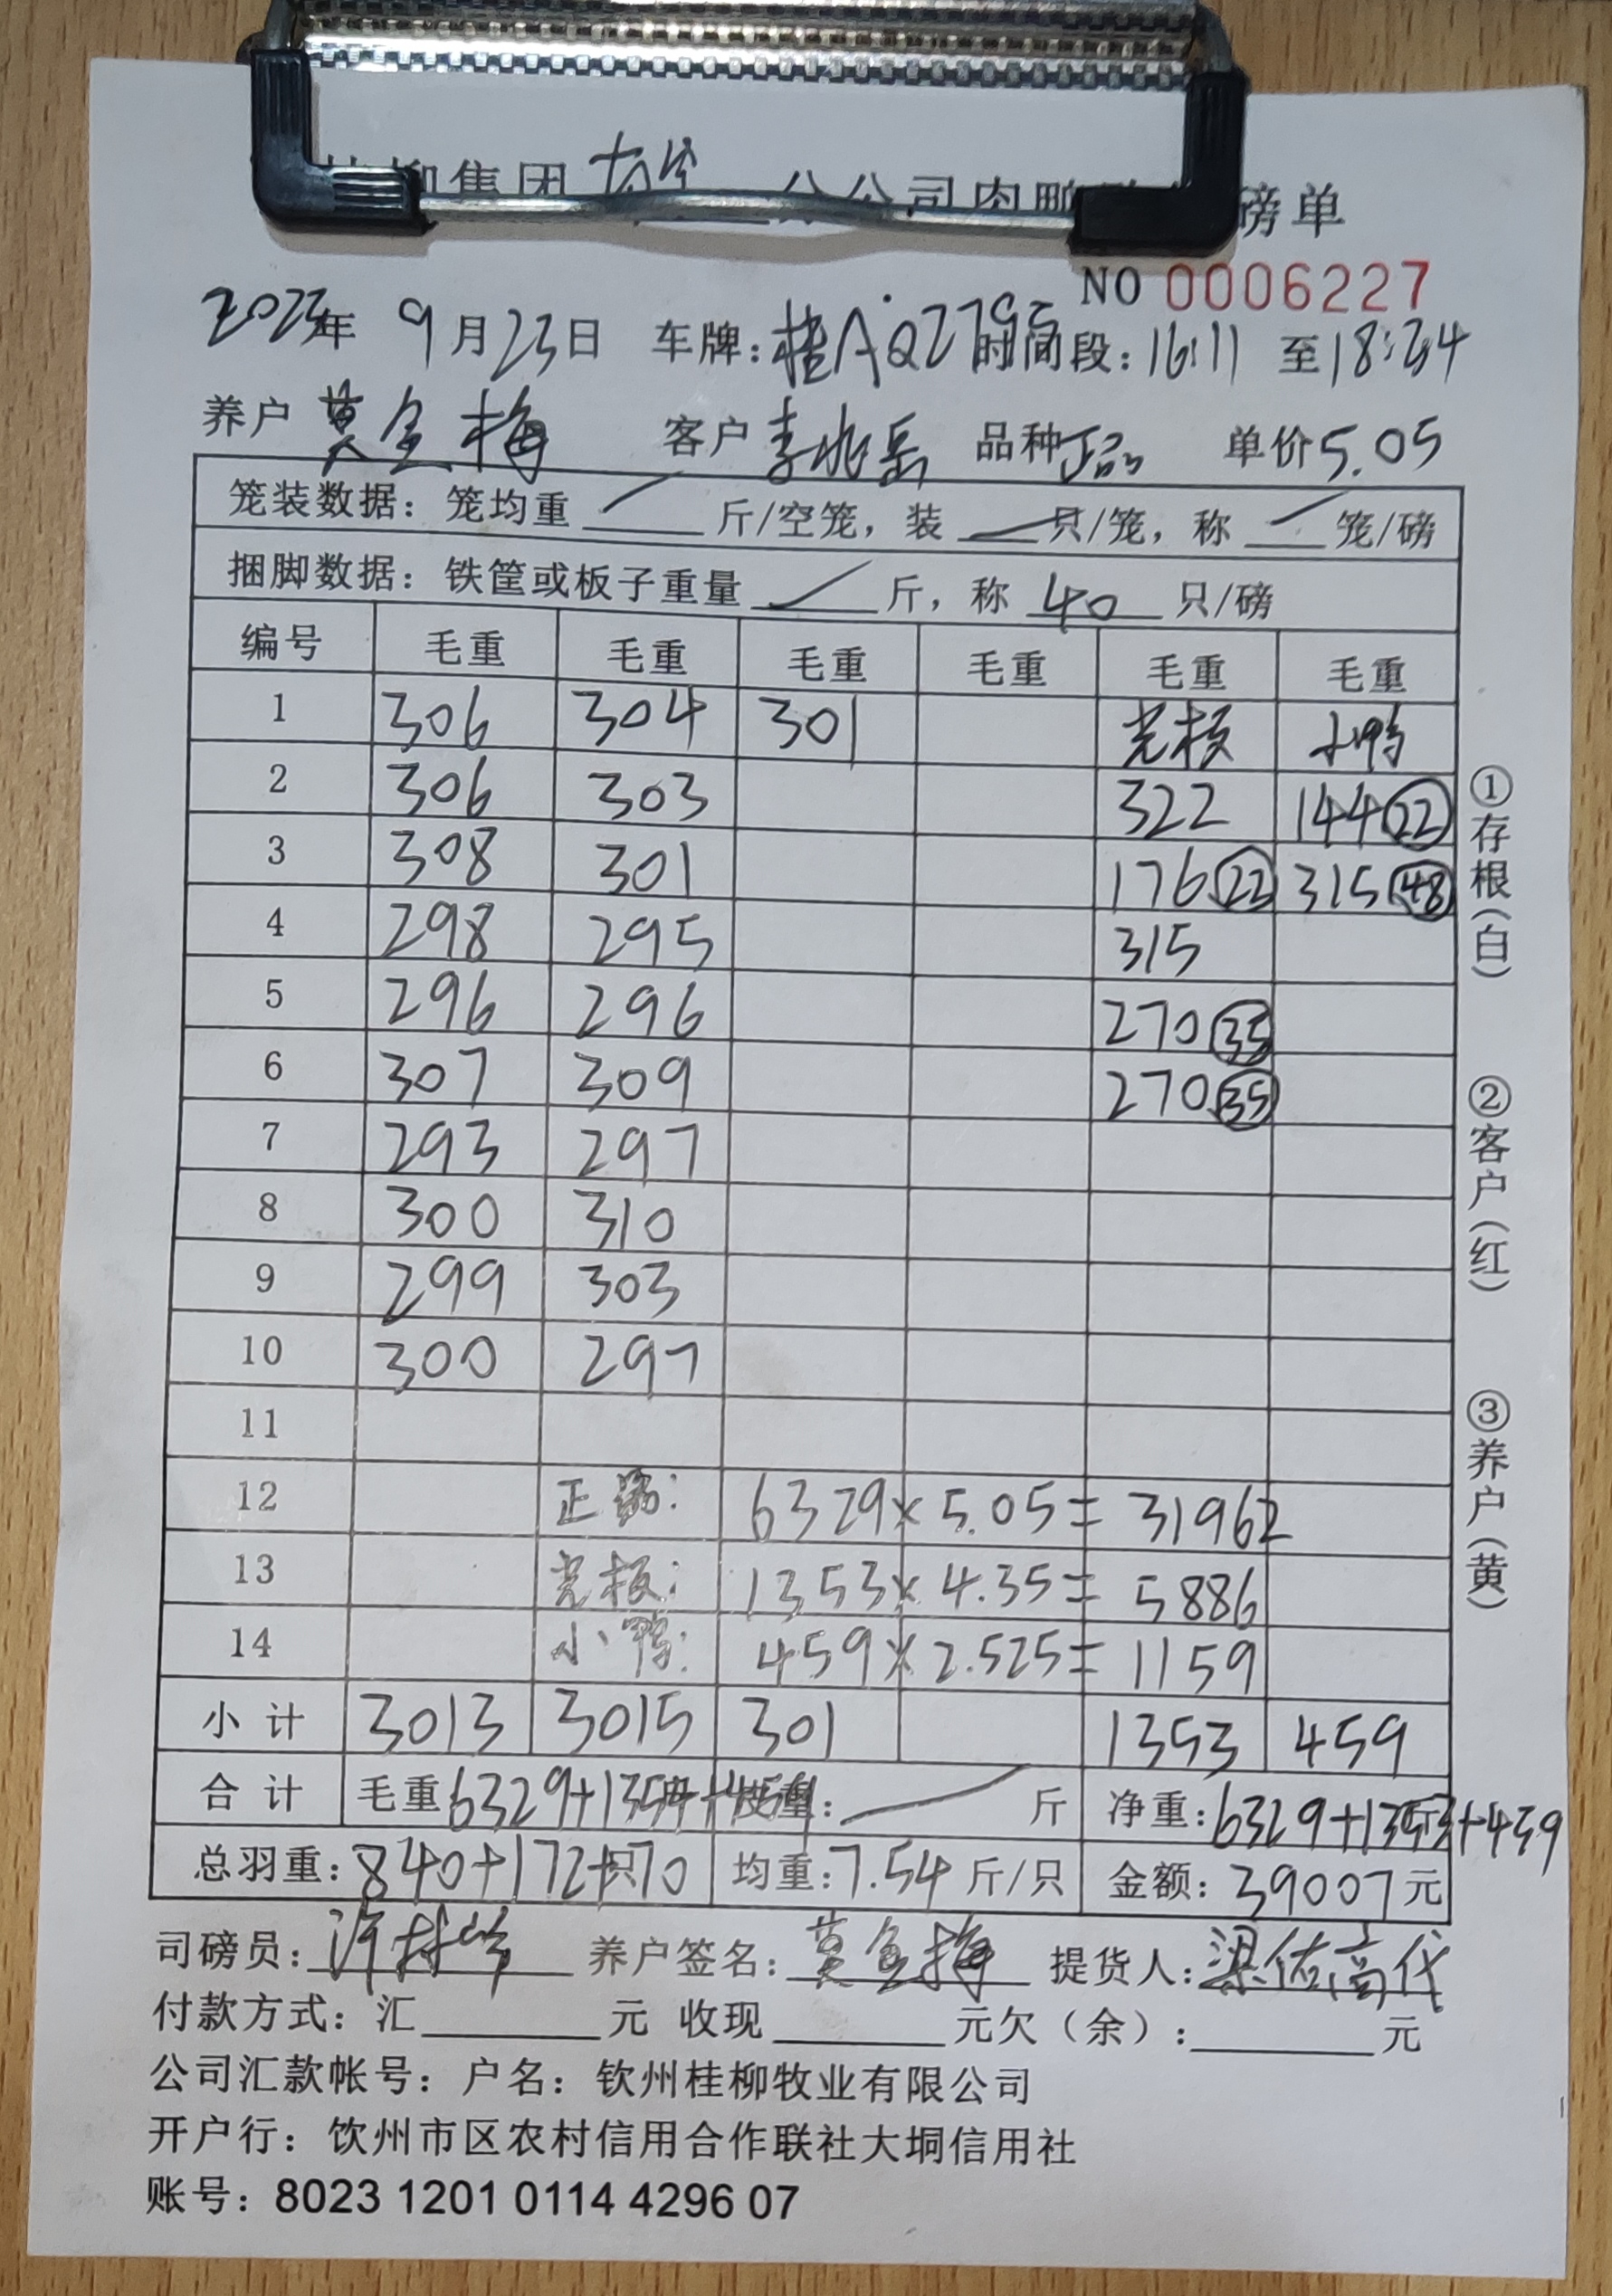 柳集团 大 分公司肉鸭 磅单
NO 0006227
年 9月23日 车牌：桂A·Q2795 时间段：16:11 至18:24
养户 莫金梅 客户 李兆岳 品种 单价5.05
笼装数据：笼均重 / 斤/空笼，装 / 只/笼，称 / 笼/磅
捆脚数据：铁筐或板子重量 / 斤，称 40 只/磅
编号 毛重 毛重 毛重 毛重 毛重 毛重
1 306 304 301 光板 小鸭
2 306 303 322 144 22
3 308 301 176 22 315 48
4 298 295 315
5 296 296 270 35
6 307 309 270 35
7 293 297
8 300 310
9 299 303
10 300 297
11
12 正品： 6329×5.05= 31962
13 光板： 1353×4.35= 5886
14 小鸭： 459×2.525= 1159
小计 3013 3015 301 1353 459
合计 毛重 6329+1353+459 皮重： / 斤 净重：6329+1353+459
总羽重：840+172+70 只 均重：7.54 斤/只 金额：39007元
司磅员： 养户签名：莫金梅 提货人：梁佑高代
付款方式：汇 元 收现 元欠（余）： 元
公司汇款帐号：户名：钦州桂柳牧业有限公司
开户行：饮州市区农村信用合作联社大垌信用社
账号：8023 1201 0114 4296 07
①存根（白）
②客户（红）
③养户（黄）